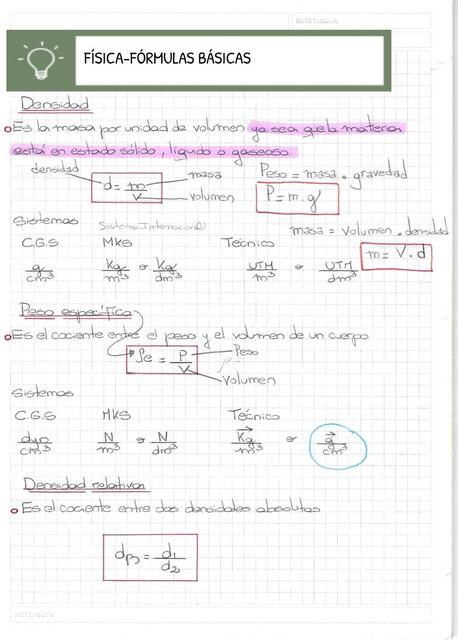 FÍSICA-FÓRMULAS BÁSICAS
Densidad
Es la masa por unidad de volumen ya sea que la materia
está en estado sólido, líquido o gaseoso
densidad
d = m/V
masa
volumen
Peso = masa . gravedad
P = m . g
masa = volumen . densidad
m = V . d
Sistemas
Sistema Internacional
C.G.S MKS Técnico
g/cm³ Kg/m³ o Kg/dm³ UTM/m³ o UTM/dm³
Peso específico
Es el cociente entre el peso y el volumen de un cuerpo
ρe = P/V
Peso
Volumen
Sistemas
C.G.S MKS Técnico
dyn/cm³ N/m³ o N/dm³ K⃗g/m³ o g⃗/cm³
Densidad relativa
Es el cociente entre dos densidades absolutas
dR = d1/d2
NOTE/NOTA